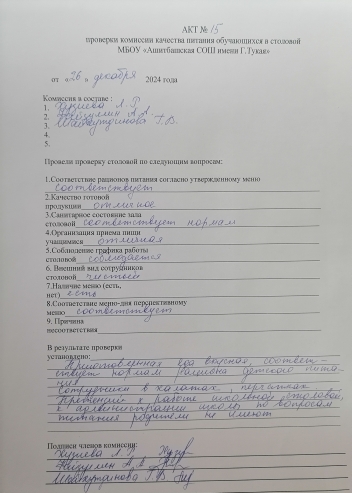 АКТ № 15
проверки комиссии качества питания обучающихся в столовой
МБОУ «Ашитбашская СОШ имени Г.Тукая»
от «26» декабря 2024 года
Комиссия в составе :
1. Хузиева Л. Р.
2. А.
3. Шабахутдинова Г. В.
4.
5.
Провели проверку столовой по следующим вопросам:
1.Соответствие рационов питания согласно утвержденному меню
соответствует
2.Качество готовой
продукции отличное
3.Санитарное состояние зала
столовой соответствует нормам
4.Организация приема пищи
учащимися отличная
5.Соблюдение графика работы
столовой соблюдается
6. Внешний вид сотрудников
столовой чистый
7.Наличие меню (есть,
нет) есть
8.Соответствие меню-дня перспективному
меню соответствует
9. Причина
несоответствия
В результате проверки
установлено:
Приготовленная еда вкусная, соответ-
ствует нормам рациона детского пита-
ния
Сотрудники в халатах, перчатках
Претензий к работе школьной столовой,
к администрации школы по вопросам
питания родители не имеют
Подписи членов комиссии:
Хузиева Л. Р.
Г. В.